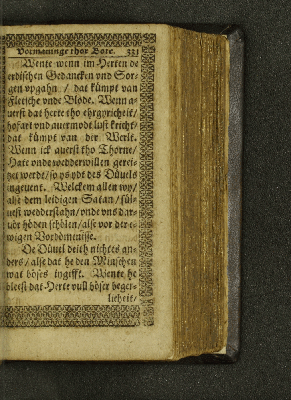 Vormaninge thor Bote. 331
Wente wenn im Herten de
erdischen Gedancken vnd Sor-
gen vpgahn / dat kümpt van
Flesche vnde Blode. Wenn a-
uerst dat herte tho ehrgyricheit/
hofart vnd auermodt lust kricht/
dat kümpt van der Werlt.
Wenn ick auerst tho Thorne/
Hate vnde wedderwillen gerei-
tzet werde / so ys ydt des Düuels
ingeuent. Welckem allen wy/
alse dem leidigen Satan / sül-
uest wedderstahn / vnde vns dar-
uör höden schölen / alse vor der e-
wigen Vordömenisse.
De Düuel deith nichtes an-
ders / alse dat he den Minschen
wat böses ingifft. Wente he
bleest dat Herte vull böser beger-
licheit /